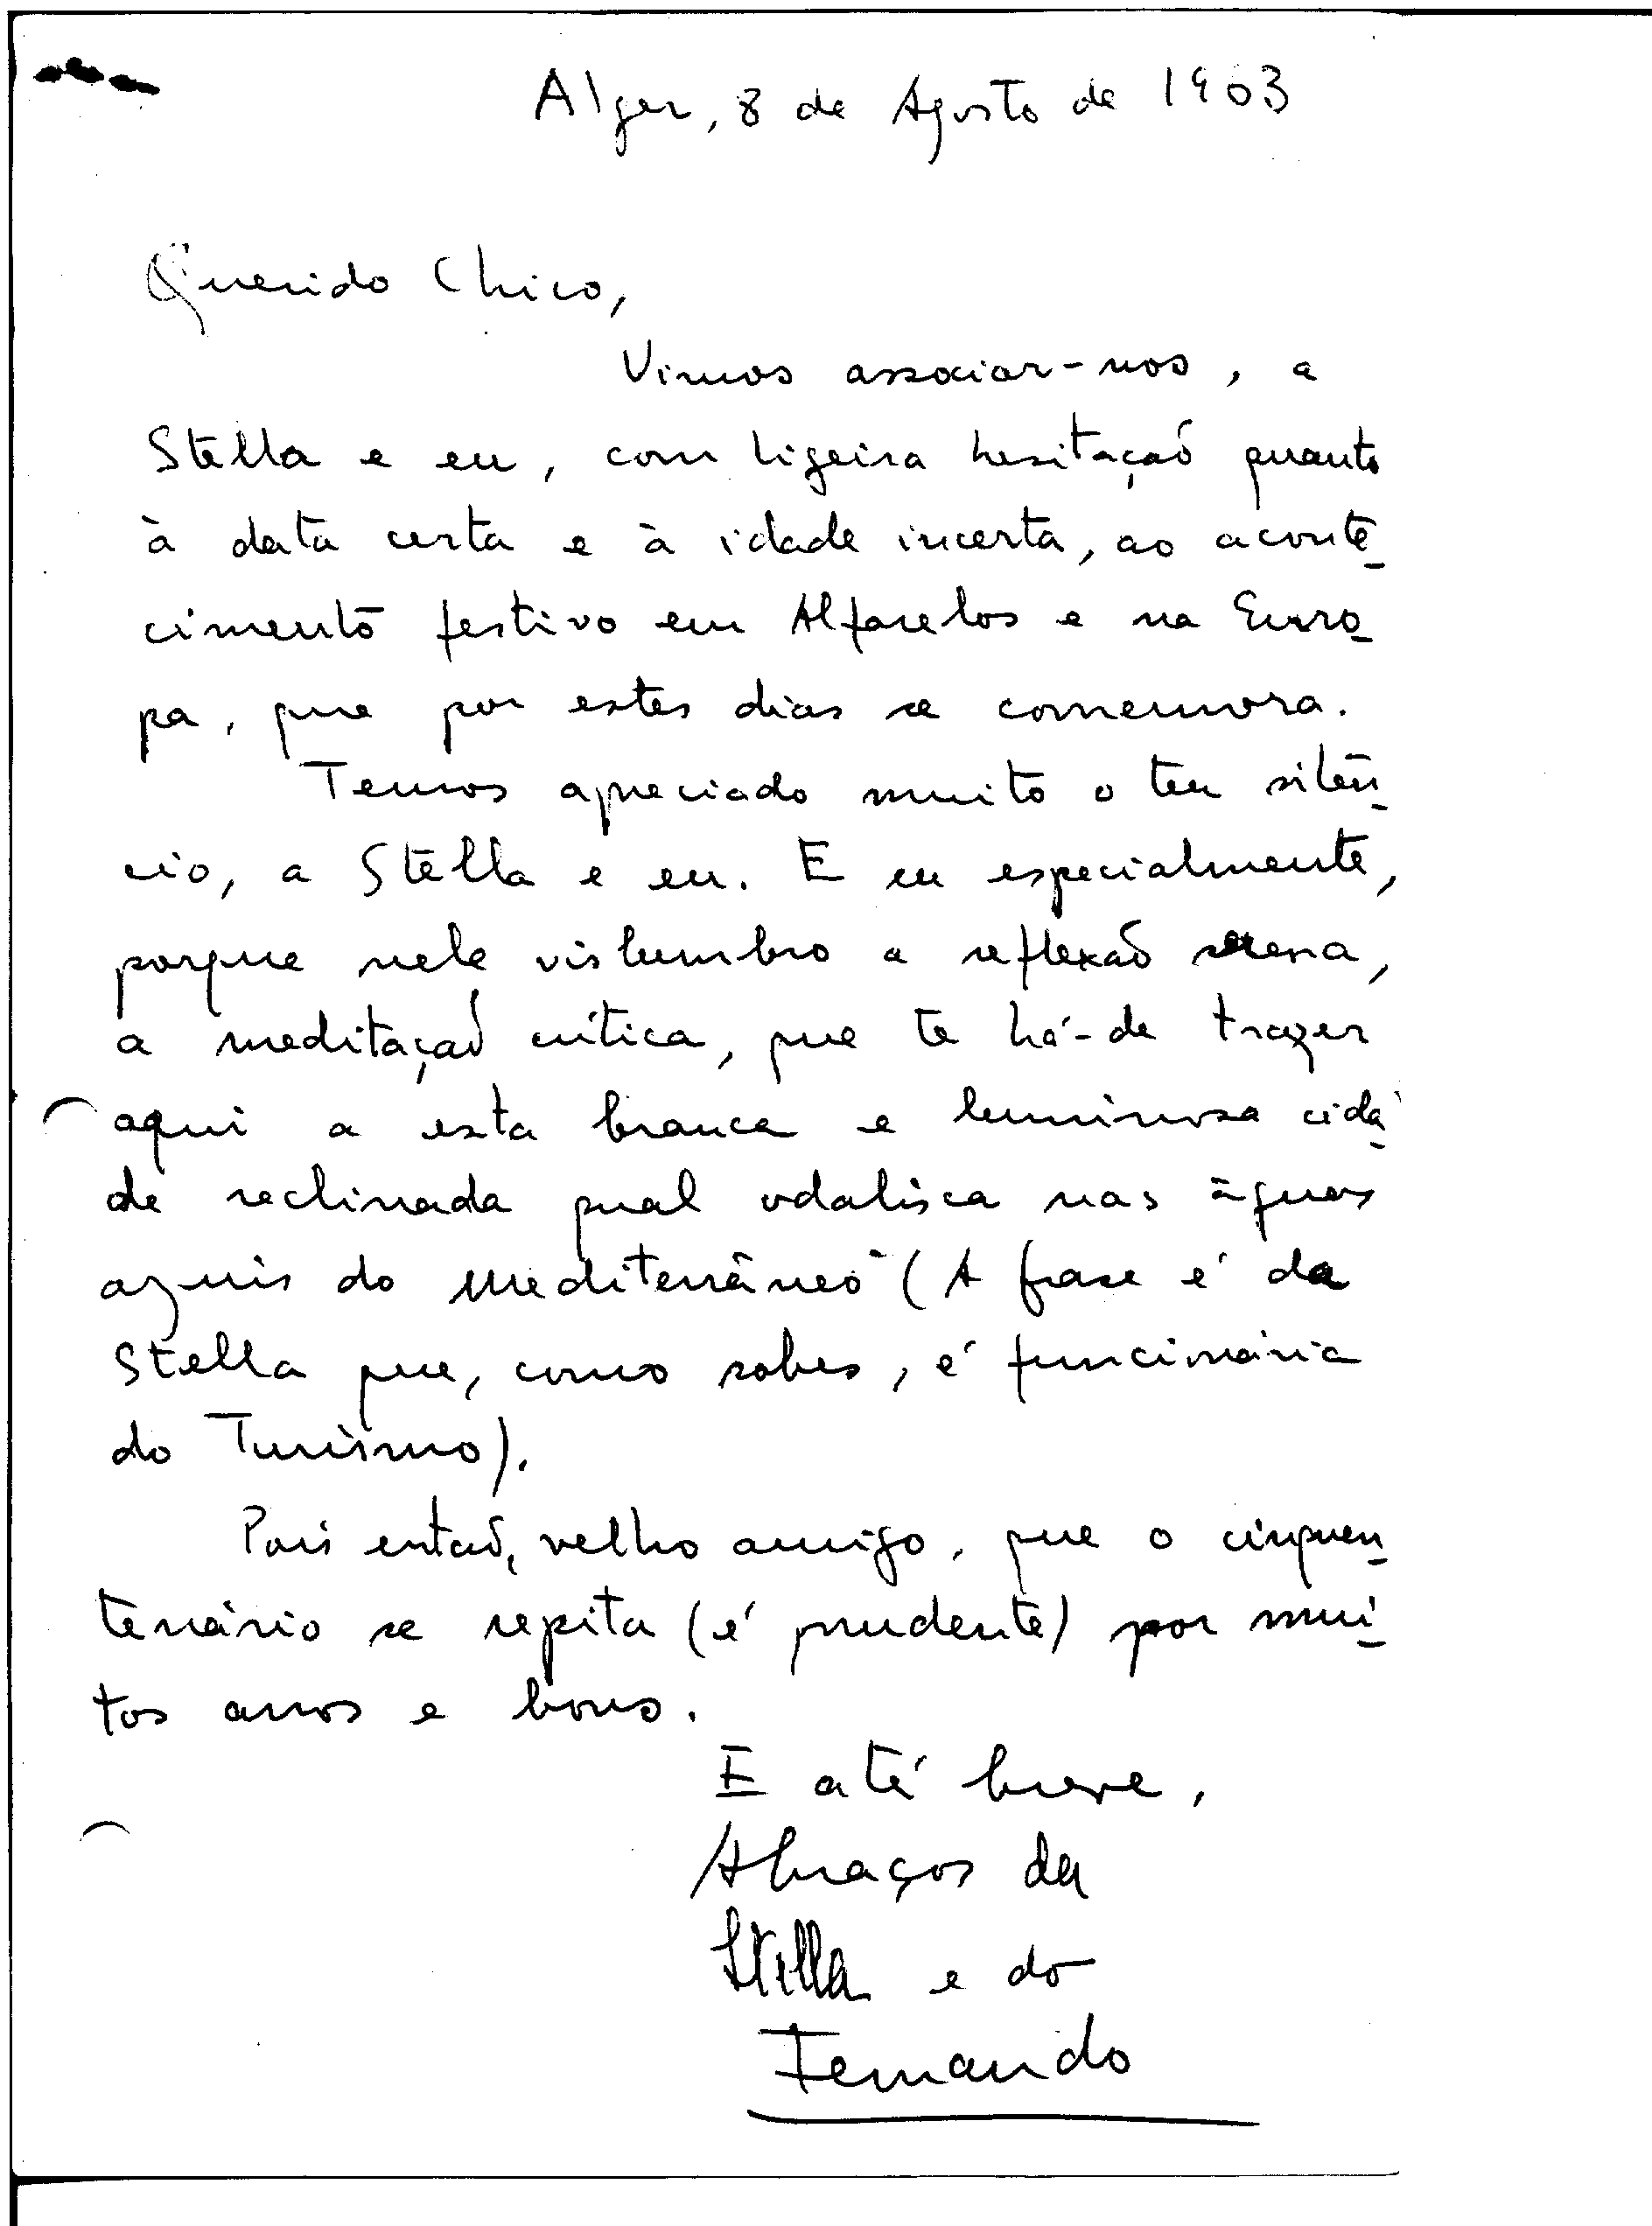 Alger, 8 de Agosto de 1963
Querido Chico,
Vimos associar-nos, a
Stella e eu, com ligeira hesitação quanto
à data certa e à idade incerta, ao aconte-
cimento festivo em Alfarelos e na Euro-
pa, que por estes dias se comemora.
Temos apreciado muito o teu silên-
cio, a Stella e eu. E eu especialmente,
porque nele vislumbro a reflexão serena,
a meditação crítica, que te há-de trazer
aqui a esta branca e luminosa cida-
de reclinada qual odalisca nas águas
azuis do Mediterrâneo (A frase é da
Stella que, como sabes, é funcionária
do Turismo).
Pois então, velho amigo, que o cinquen-
tenário se repita (é prudente) por mui-
tos anos e bons.
E até breve,
Abraços da
Stella e do
Fernando